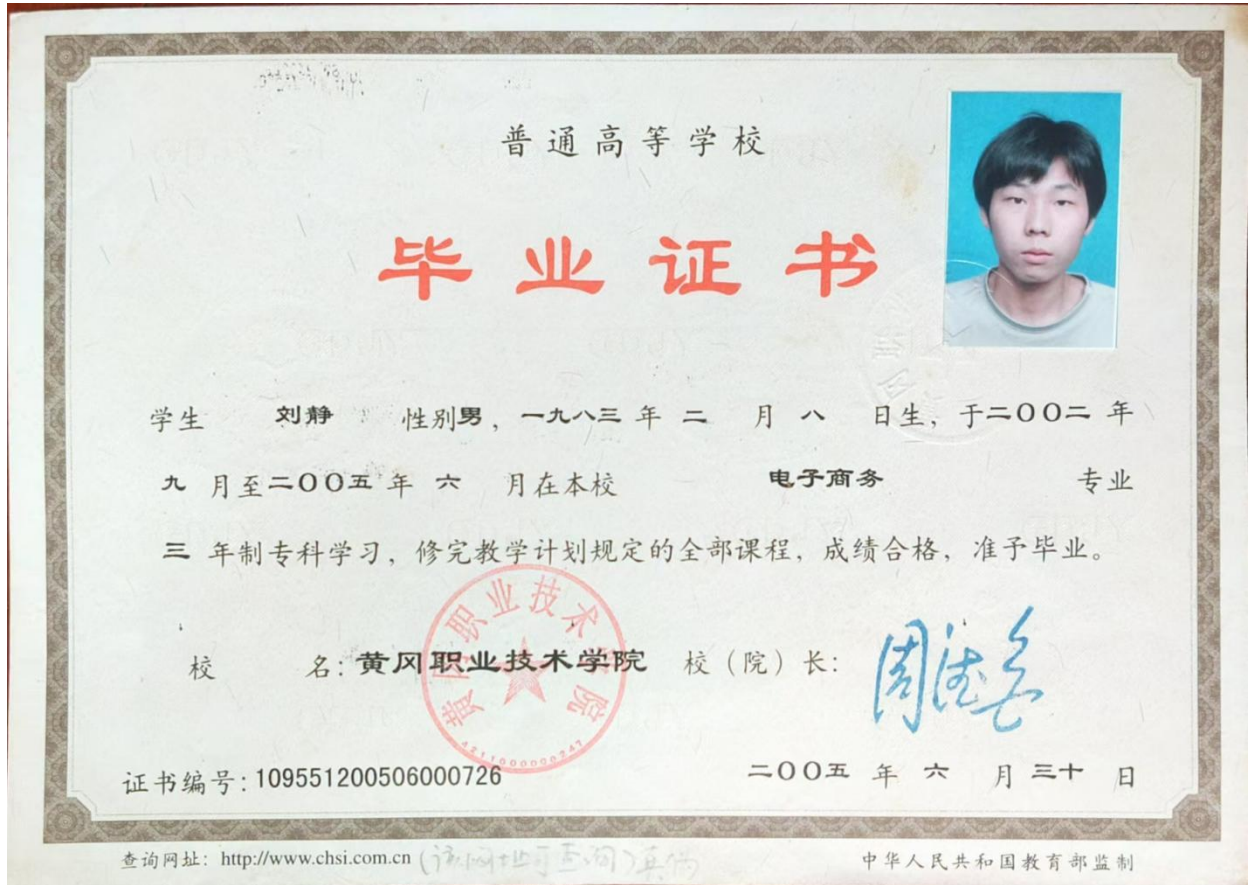 普通高等学校
毕业证书
学生 刘静 性别男，一九八三年 二 月 八 日生，于二〇〇二 年
九 月至二〇〇五 年 六 月在本校 电子商务 专业
三 年制专科学习，修完教学计划规定的全部课程，成绩合格，准予毕业。
校 名：黄冈职业技术学院 校（院）长：
黄冈职业技术学院
4211000000247
证书编号：109551200506000726 二〇〇五 年 六 月 三十 日
查询网址：http://www.chsi.com.cn (该网址可查询)真伪
中华人民共和国教育部监制